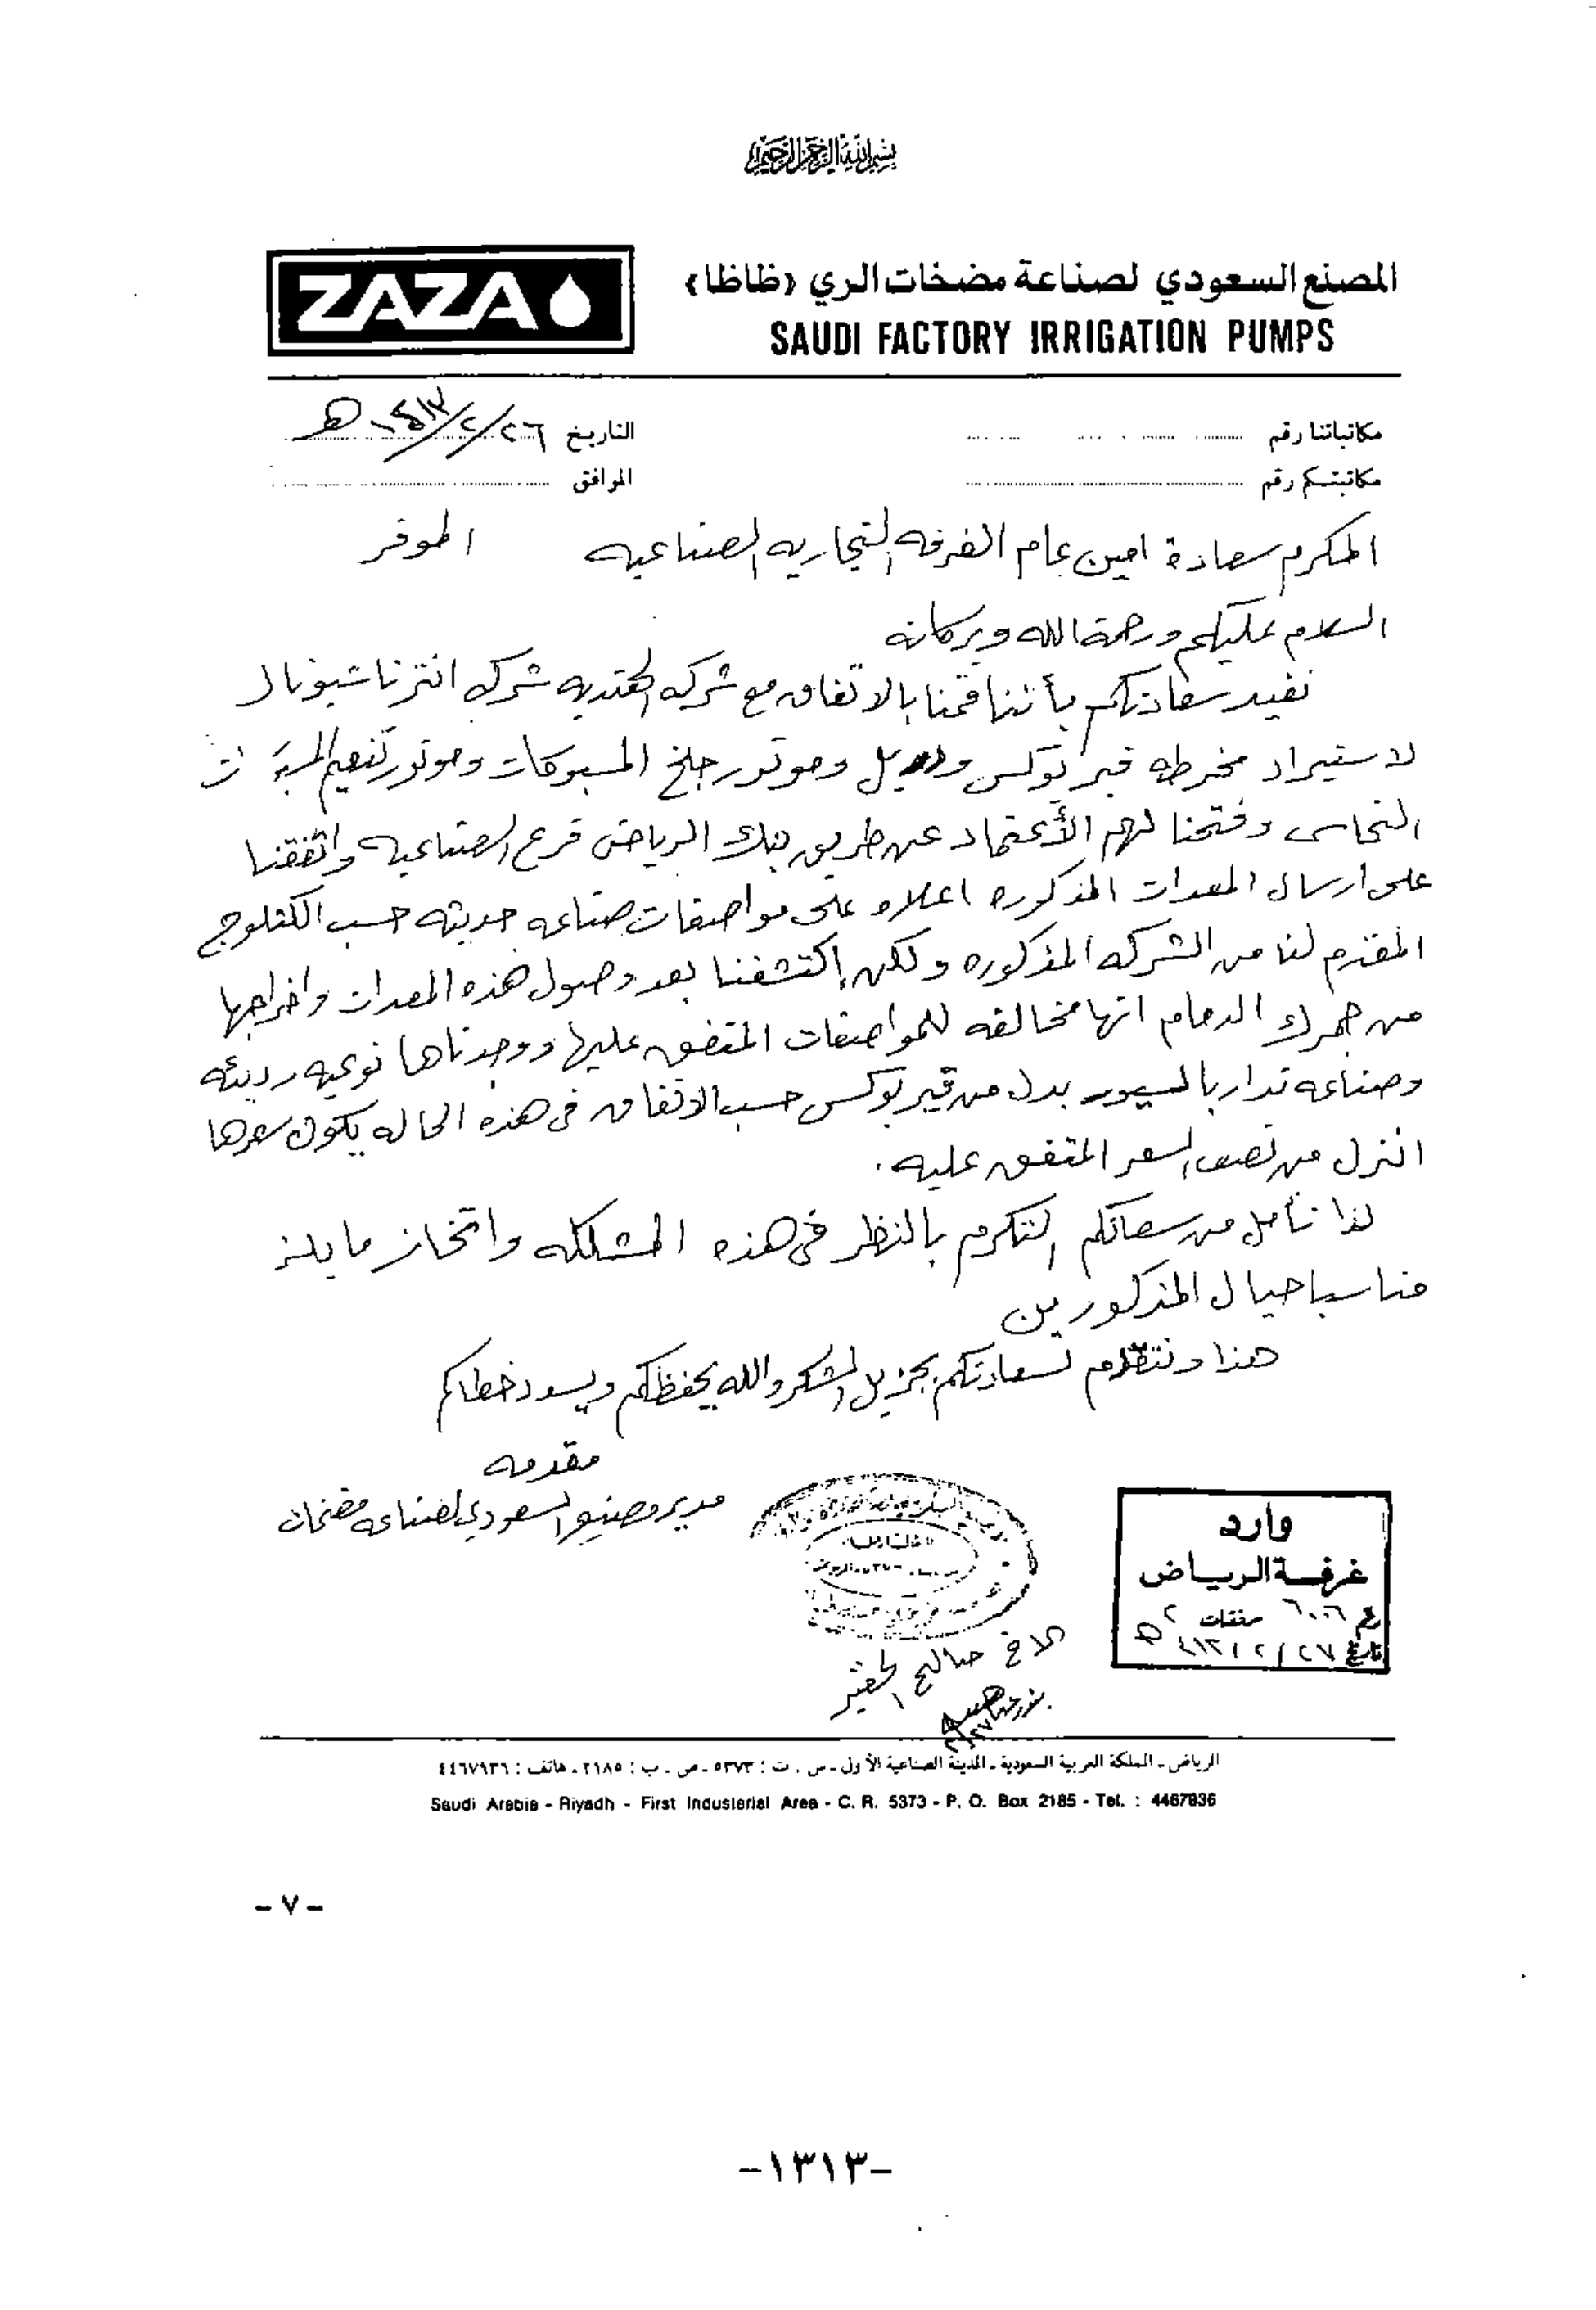 بسم الله الرحمن الرحيم
ZAZA
المصنع السعودي لصناعة مضخات الري (ظاظا)
SAUDI FACTORY IRRIGATION PUMPS
مكاتباتنا رقم
التاريخ ٢٦/٢/١٤١٣ هـ
مكاتبتكم رقم
الموافق
المكرم سعادة امين عام الغرفه التجاريه الصناعيه الموقر
السلام عليكم ورحمة الله وبركاته
نفيد سعادتكم بأننا قمنا بالاتفاق مع شركه شركه انترناشيونال
لاستيراد مخرطه قير بوكس ودريل وموتور جلخ المسبوكات وموتور تنعيم
النحاس وفتحنا لهم الأعتماد عن طريق بنك الرياض فرع الصناعيه واتفقنا
على ارسال المعدات المذكوره اعلاه على مواصفات صناعه حديثه حسب الكتلوج
المقدم لنا من الشركه المذكوره ولكن إكتشفنا بعد وصول هذه المعدات واخراجها
من جمرك الدمام انها مخالفه للمواصفات المتفق عليها ووجدناها نوعيه رديئه
وصناعه تدار بالسيور بدل من قير بوكس حسب الاتفاق فى هذه الحاله يكون سعرها
انزل من نصف السعر المتفق عليه .
لذا نأمل من سعاتكم التكرم بالنظر فى هذه المشكله واتخاز ما يلز
مناسبا حيال المذكورين
هذا ونتقدم لسعادتكم بجزيل الشكر والله يحفظكم ويسدد خطاكم
مقدمه
مدير مصنع السعودي لصناعه مضخات
وارد
غرفة الرياض
رقم ٦٠٠٦ مرفقات ٢
تاريخ ٢٧/٢/٤١٣ هـ
الاخ صالح
الرياض ـ المملكة العربية السعودية ـ المدينة الصناعية الأول ـ س . ت : ٥٣٧٣ ـ ص . ب : ٢١٨٥ ـ هاتف : ٤٤٦٧٩٣٦
Saudi Arabia - Riyadh - First Industerial Area - C. R. 5373 - P. O. Box 2185 - Tel. : 4467936
- ٧ -
-١٣١٣-